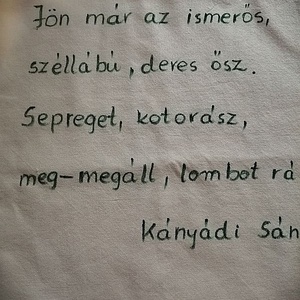 Jön már az ismerős,
széllábú, deres ősz.
Sepreget, kotorász,
meg-megáll, lombot rá
Kányádi Sán